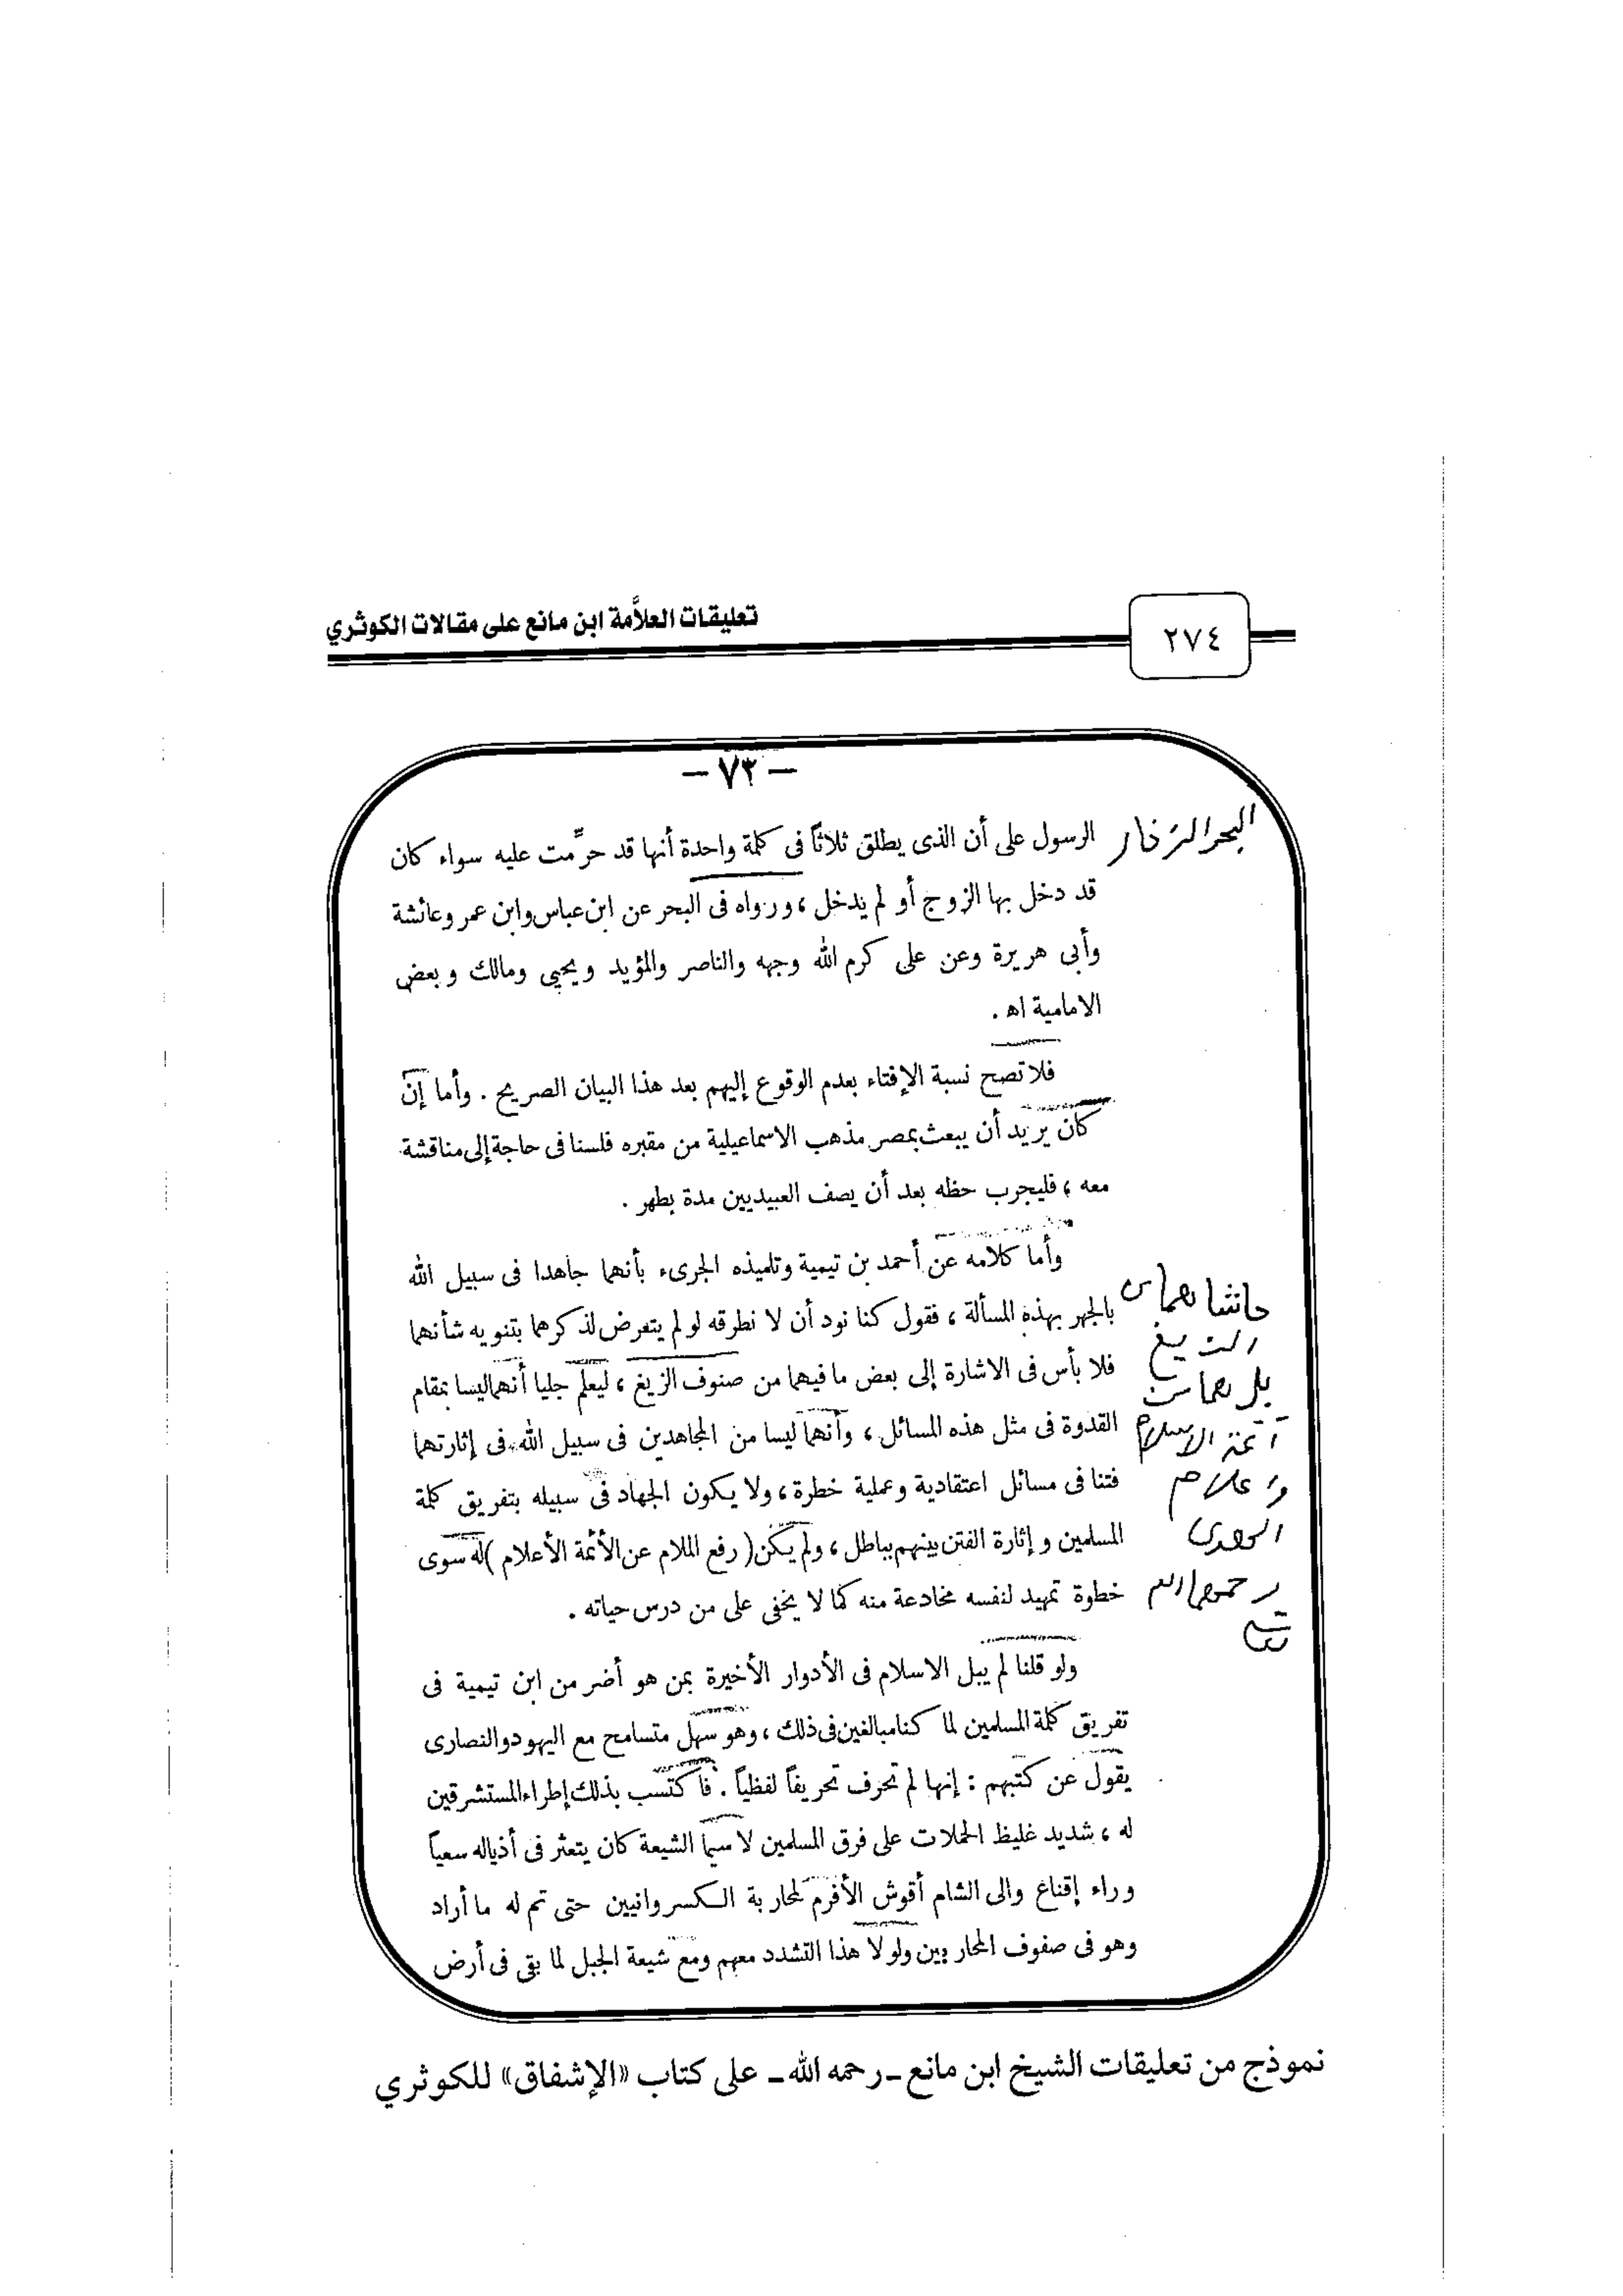 تعليقات العلاَّمة ابن مانع على مقالات الكوثري
٢٧٤
— ٧٣ —
البحر الزخار
الرسول على أن الذى يطلق ثلاثاً فى كلمة واحدة أنها قد حرَّمت عليه سواء كان
قد دخل بها الزوج أو لم يدخل ، ورواه فى البحر عن ابن عباس وابن عمر وعائشة
وأبى هريرة وعن على كرم الله وجهه والناصر والمؤيد ويحيى ومالك وبعض
الامامية اه .
فلا تصح نسبة الإفتاء بعدم الوقوع إليهم بعد هذا البيان الصريح . وأما إن
كان يريد أن يبعث بمصر مذهب الاسماعيلية من مقبره فلسنا فى حاجة إلى مناقشة
معه ، فليجرب حظه بعد أن يصف العبيديين مدة بطهر .
وأما كلامه عن أحمد بن تيمية وتلميذه الجرىء بأنهما جاهدا فى سبيل الله
بالجهر بهذه المسألة ، فقول كنا نود أن لا نطرقه لو لم يتعرض لذكرهما بتنويه شأنهما
فلا بأس فى الاشارة إلى بعض ما فيهما من صنوف الزيغ ، ليعلم جليا أنهما ليسا بمقام
القدوة فى مثل هذه المسائل ، وأنهما ليسا من المجاهدين فى سبيل الله فى إثارتهما
فتنا فى مسائل اعتقادية وعملية خطرة ، ولا يكون الجهاد فى سبيله بتفريق كلمة
المسلمين و إثارة الفتن بينهم بباطل ، ولم يكن ( رفع الملام عن الأئمة الأعلام ) له سوى
خطوة تمهيد لنفسه مخادعة منه كما لا يخفى على من درس حياته .
حاشاهما من
الزيغ
بل هما من
أئمة الاسلام
واعلام
الهدى
رحمهما الله
تعالى
ولو قلنا لم يبل الاسلام فى الأدوار الأخيرة بمن هو أضر من ابن تيمية فى
تفريق كلمة المسلمين لما كنا مبالغين فى ذلك ، وهو سهل متسامح مع اليهود والنصارى
يقول عن كتبهم : إنها لم تحرف تحريفاً لفظياً . فاكتسب بذلك إطراء المستشرقين
له ، شديد غليظ الحملات على فرق المسلمين لا سيما الشيعة كان يتعثر فى أذياله سعياً
وراء إقناع والى الشام أقوش الأفرم لمحاربة الكسروانيين حتى تم له ما أراد
وهو فى صفوف المحاربين ولولا هذا التشدد معهم ومع شيعة الجبل لما بقى فى أرض
نموذج من تعليقات الشيخ ابن مانع ـ رحمه الله ـ على كتاب «الإشفاق» للكوثري